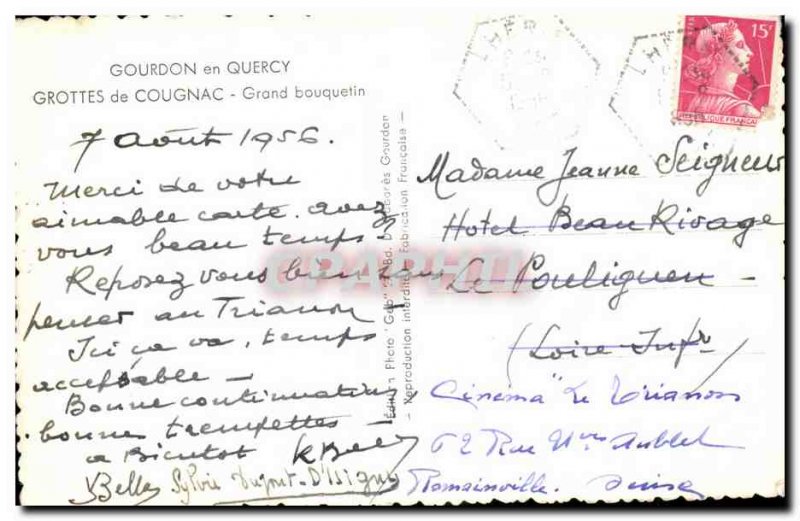 GOURDON en QUERCY
GROTTES de COUGNAC - Grand bouquetin
7 Août 1956.
Merci de votre
aimable carte. avez
vous beau temps -
Reposez vous bien sans
penser au Trianon
Ici ça va, temps
acceptable -
Bonne continuation
bonnes trempettes
a Bientot
Sylvie Dupont-D'Isigny
Édition Photo "Géo"
- Reproduction interdite - Fabrication Française -
15F
REPUBLIQUE FRANCAISE
Madame Jeanne Seigneur
Hotel Beau Rivage
Le Pouliguen -
(Loire Infre
Cinéma "Le Trianon
62 Rue Ves Aublet
Romainville. Seine
CPAPHIL